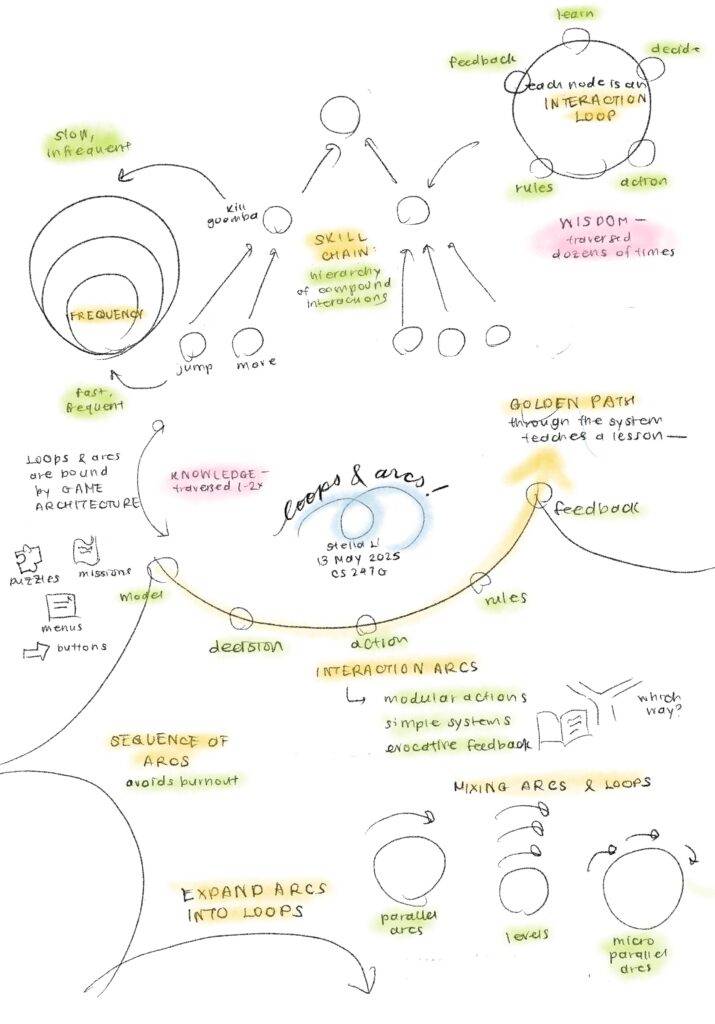 learn
feedback
decide
each node is an
INTERACTION
LOOP
rules
action
WISDOM —
traversed
dozens of times
slow,
infrequent
kill
goomba
SKILL
CHAIN:
hierarchy
of compound
interactions
FREQUENCY
jump
move
fast,
frequent
GOLDEN PATH
through the system
teaches a lesson —
LOOPS & arcs
are bound
by GAME
ARCHITECTURE
KNOWLEDGE —
traversed 1-2x
loops & arcs. —
Stella Li
13 May 2025
CS 247G
feedback
puzzles
missions
model
menus
buttons
decision
action
rules
INTERACTION ARCS
modular actions
simple systems
evocative feedback
which
way?
SEQUENCE OF
ARCS
avoids burnout
MIXING ARCS & LOOPS
EXPAND ARCS
INTO LOOPS
parallel
arcs
levels
micro
parallel
arcs